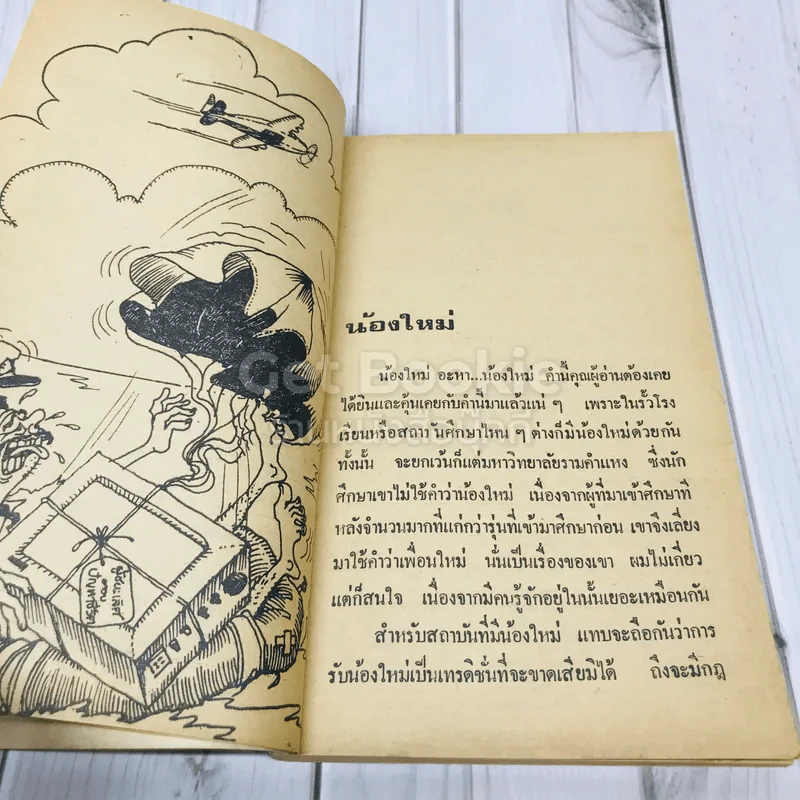 น้องใหม่
น้องใหม่ อะหา...น้องใหม่ คำนี้คุณผู้อ่านต้องเคย
ได้ยินและคุ้นเคยกับคำนี้มาแล้วแน่ ๆ เพราะในรั้วโรง
เรียนหรือสถาบันศึกษาไหน ๆ ต่างก็มีน้องใหม่ด้วยกัน
ทั้งนั้น จะยกเว้นก็แต่มหาวิทยาลัยรามคำแหง ซึ่งนัก
ศึกษาเขาไม่ใช้คำว่าน้องใหม่ เนื่องจากผู้ที่มาเข้าศึกษาที
หลังจำนวนมากที่แก่กว่ารุ่นที่เข้ามาศึกษาก่อน เขาจึงเลี่ยง
มาใช้คำว่าเพื่อนใหม่ นั่นเป็นเรื่องของเขา ผมไม่เกี่ยว
แต่ก็สนใจ เนื่องจากมีคนรู้จักอยู่ในนั้นเยอะเหมือนกัน
สำหรับสถาบันที่มีน้องใหม่ แทบจะถือกันว่าการ
รับน้องใหม่เป็นเทรดิชั่นที่จะขาดเสียมิได้ ถึงจะมีกฎ
Get Bookie